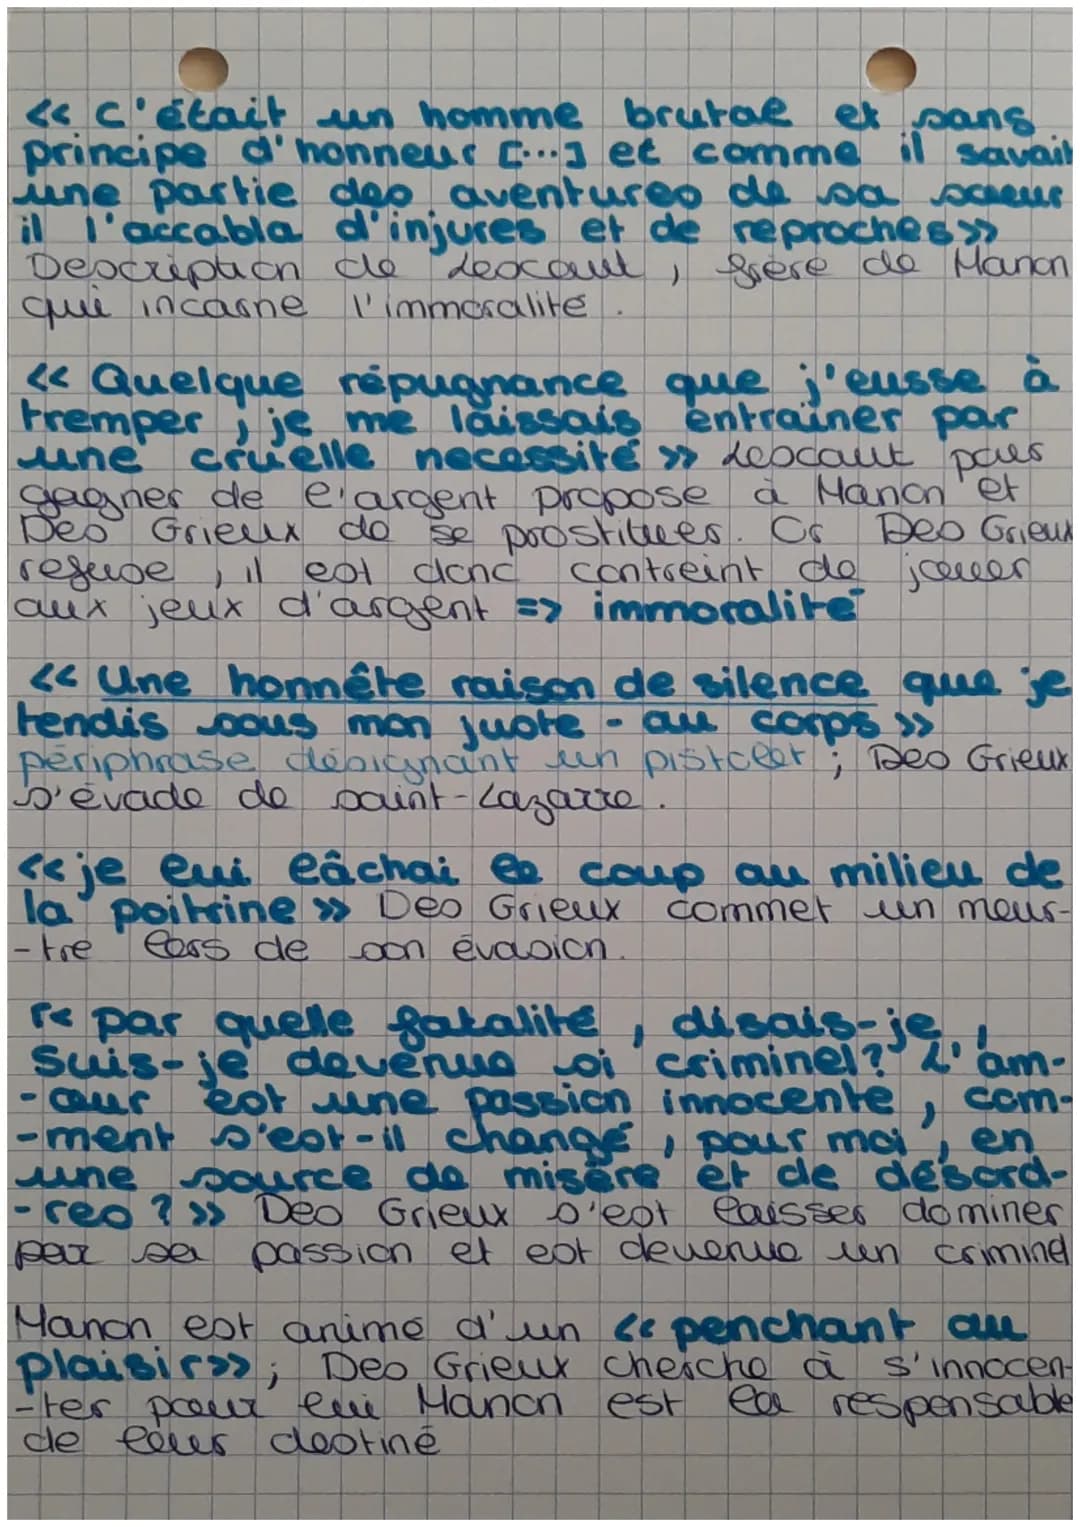 << C'était un homme brutal et sans
principe d'honneur [...] et comme il savait
une partie des aventures de sa soeur
il l'accabla d'injures et de reproches >>
Description de Lescaut, frère de Manon
qui incarne l'immoralité.
<< Quelque répugnance que j'eusse à
tremper, je me laissais entraîner par
une cruelle necessité >> Lescaut pour
gagner de l'argent propose à Manon et
Des Grieux de se prostituer. Or Des Grieux
refuse, il est donc contreint de jouer
aux jeux d'argent => immoralité
<< Une honnête raison de silence que je
tendis sous mon juste-au corps >>
périphrase désignant un pistolet ; Des Grieux
s'évade de saint-Lazarre.
<< je lui lâchai le coup au milieu de
la poitrine >> Des Grieux commet un meur-
-tre lors de son évasion.
<< par quelle fatalité, disais-je,
suis-je devenue si criminel? L'am-
-our est une passion innocente, com-
-ment s'est-il changé, pour moi, en
une source de misère et de désord-
-res ? >> Des Grieux s'est laisser dominer
par sa passion et est devenue un criminel
Manon est animé d'un << penchant au
plaisir >> ; Des Grieux cherche à s'innocen-
-ter pour lui Manon est la responsable
de leur destiné